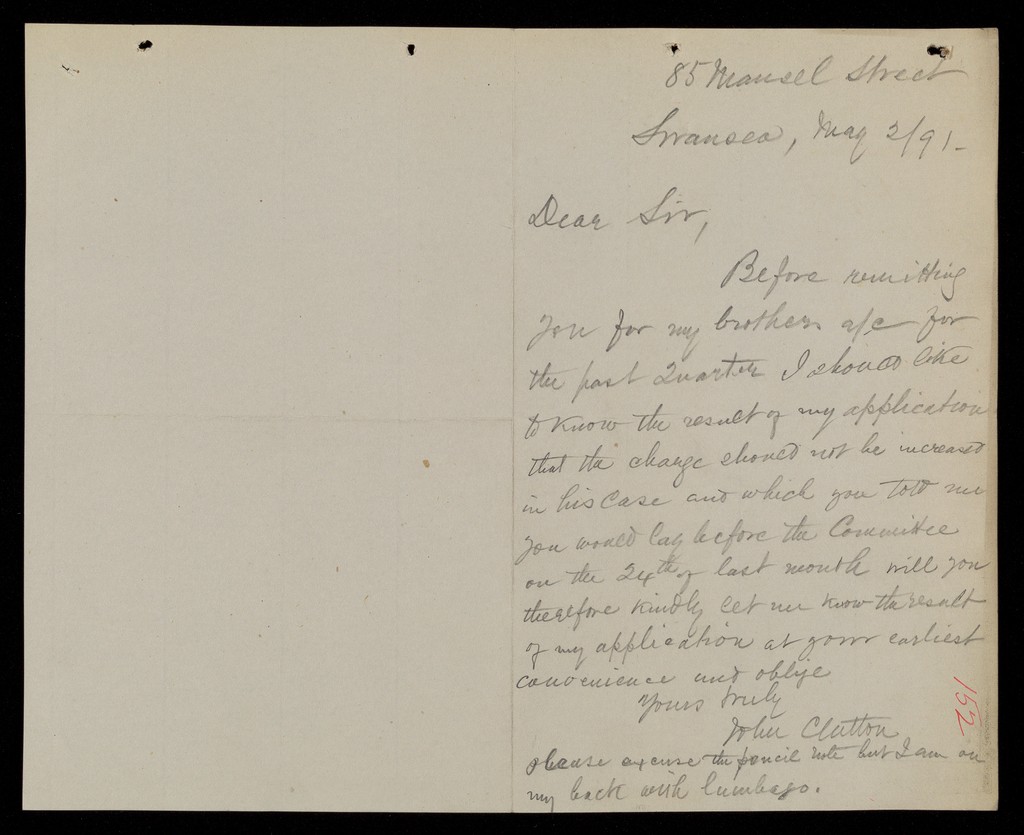 85 Mansel Street
Swansea, May 2/91-
Dear Sir,
Before remitting
you for my brothers a/c for
the past Quarter I should like
to know the result of my application
that the charge should not be increased
in his case and which you told me
you would lay before the Committee
on the 24th of last month will you
therefore kindly let me know the result
of my application at your earliest
convenience and oblige
Yours truly
John Clutton
please excuse the pencil note but I am on
my back with lumbago.
152